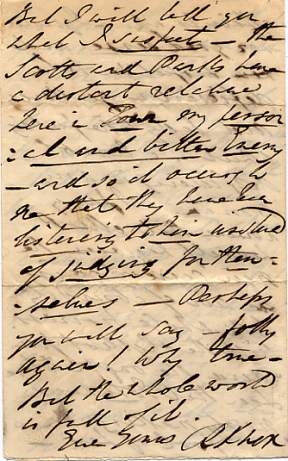 But I will tell you
what I suspect – the
Scotts and Parks have
a distant relative
here in Town my person
=al and bitter Enemy
– and so it occurs to
me that they have been
listening to him instead
of judging for them-
-selves – Perhaps
you will say – folly
again! Why true –
But the whole world
is full of it.
Ever Yours R Knox